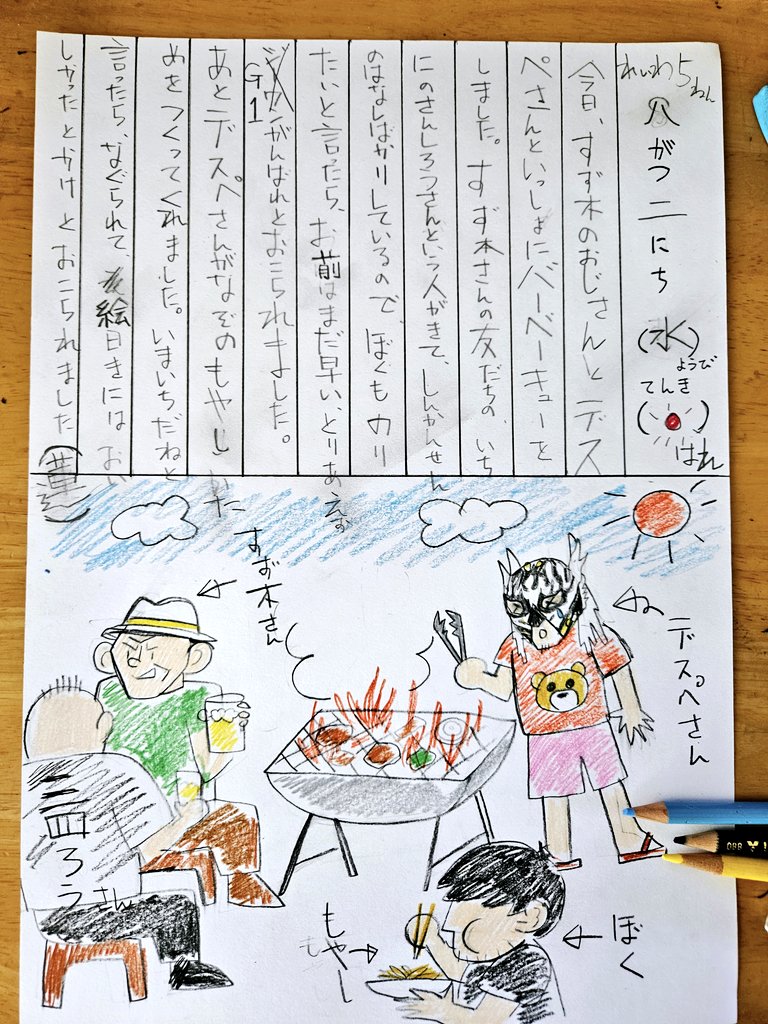 れいわ5ねん
八がつ二にち(水)ようび
てんき( )はれ
今日、すず木のおじさんとデス
ペさんといっしょにバーベーキューを
しました。すず木さんの友だちの、いち
にのさんしろうさんという人がきて、しんかんせん
のはなしばかりしているので、ぼくものり
たいと言ったら、お前はまだ早い、とりあえず
G1がんばれとおこられました。
あとデスペさんがなぞのもやしいた
めをつくってくれました。いまいちだねと
言ったら、なぐられて、絵日きにはおい
しかったとかけとおこられました
すず木さん
デスペさん
三四ろうさん
もやし
ぼく